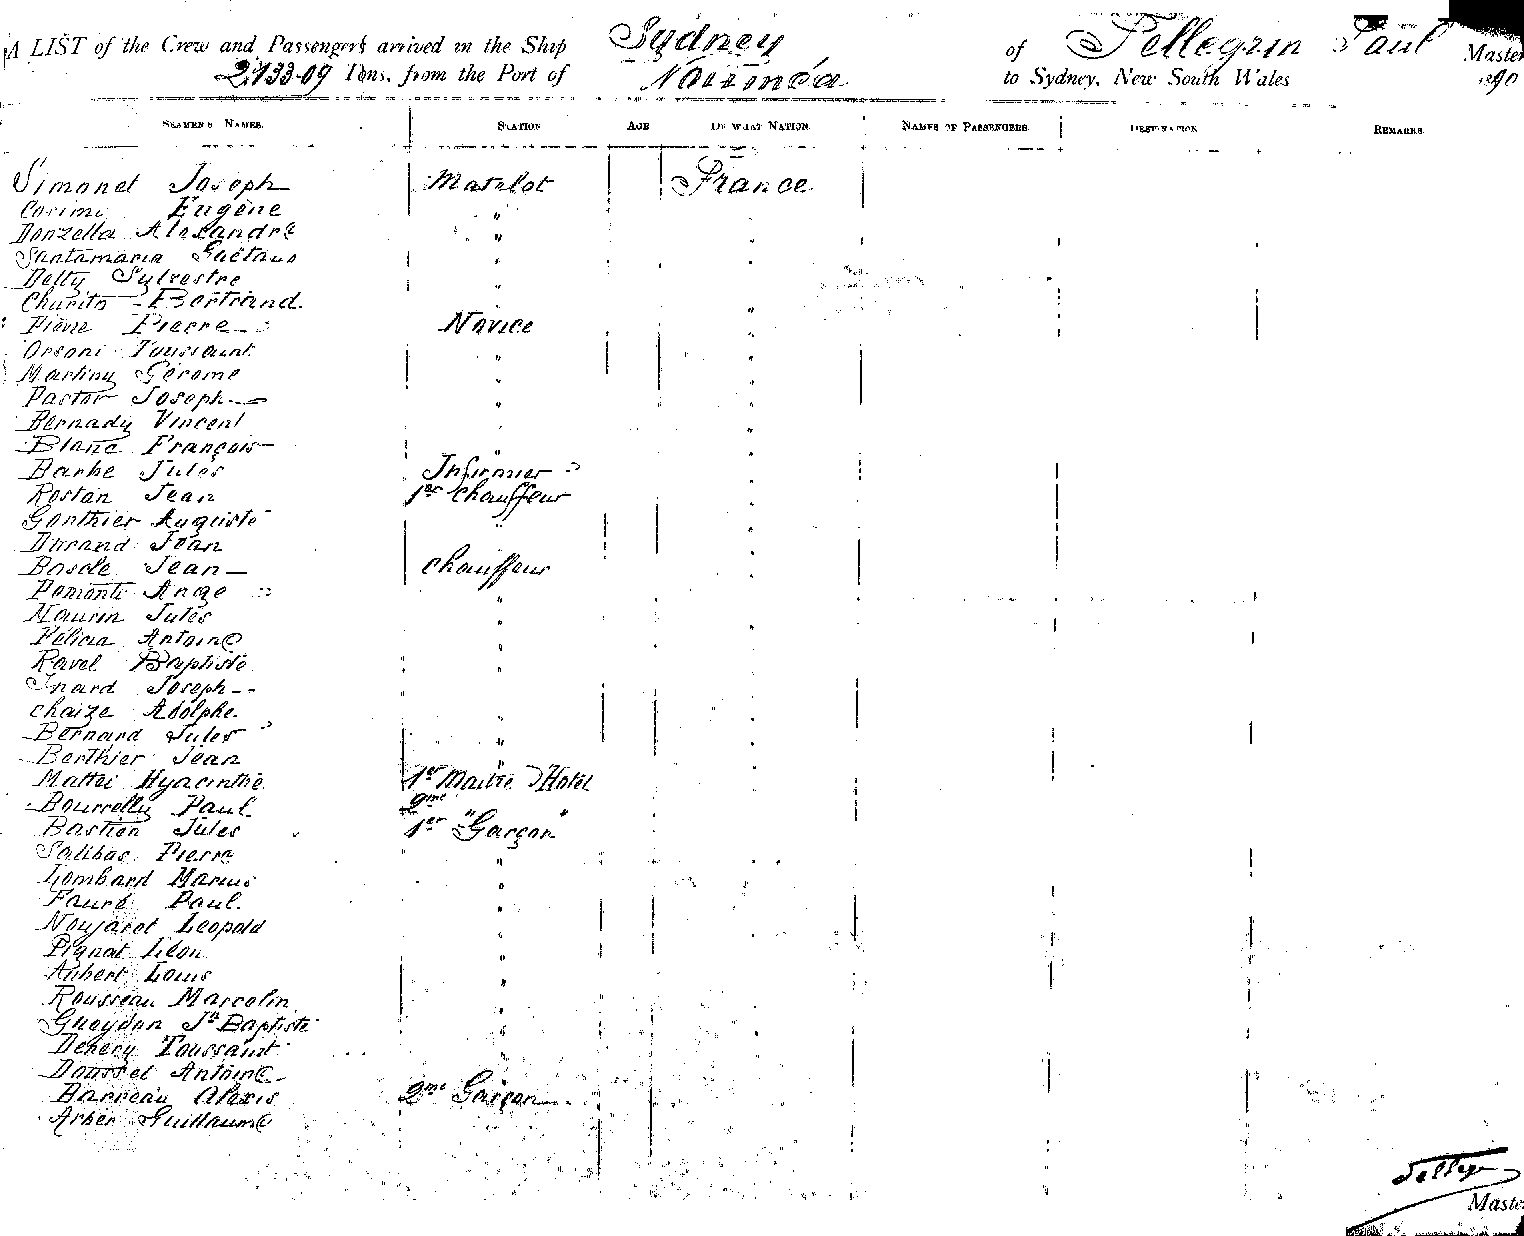 A LIST of the Crew and Passengers arrived in the Ship Sydney of Pellegrin Paul Master
2,133·09 Tons, from the Port of Nouméa to Sydney, New South Wales 1890
SEAMEN'S NAMES. STATION AGE OF WHAT NATION. NAMES OF PASSENGERS. DESTINATION REMARKS.
Simonet Joseph Matelot France
Eugène "
Donzella Alexandre " "
Santamaria Gaëtano
Detty Sylvestre
Charito Bertrand
Piève Pierre Novice "
Orsoni Toussaint " "
Martiny Gérome " "
Pastor Joseph " "
Bernady Vincent
Blanc François "
Barbe Jules Infirmier "
Rostan Jean 1er Chauffeur "
Gonthier Auguste "
Durand Jean
Boscle Jean Chauffeur "
Pomonti Ange "
Maurin Jules "
Félicia Antoine "
Ravel Baptiste "
Inard Joseph "
Chaize Adolphe
Bernard Jules "
Berthier Jean "
Mattei Hyacinthe 1er Maitre d'Hotel
Bourrelly Paul 2me " "
Bastien Jules 1er Garçon
Salibas Pierre "
Lombard Marius "
Faure Paul "
Noujaret Leopold "
Pignat Léon "
Aubert Louis "
Rousseau Marcelin "
Gueydon Jn Baptiste "
Toussaint
Doussel Antoine
Barreau Alexis 2me Garçon
Guillaume
Master